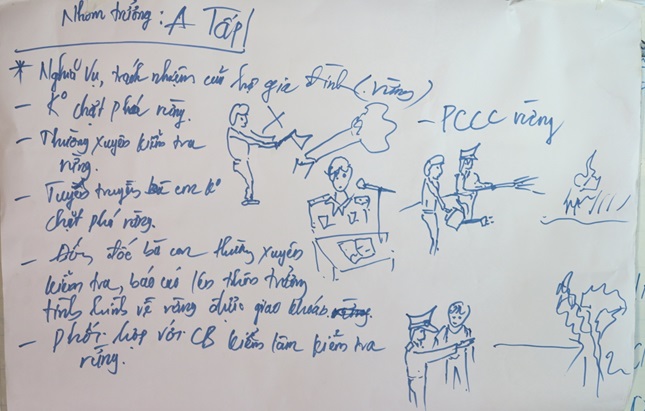 Nhóm trưởng: A Tấp
* Nghĩa vụ, trách nhiệm của hộ gia đình (rừng)
- K° chặt phá rừng.
- Thường xuyên kiểm tra
rừng.
- Tuyên truyền bà con k°
chặt phá rừng.
- Đôn đốc bà con thường xuyên
kiểm tra, báo cáo lên thôn trưởng
tình hình về rừng được giao khoán
- Phối hợp với CB kiểm lâm kiểm tra
rừng.
- PCCC rừng